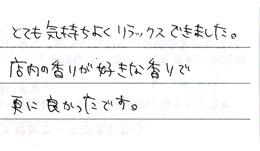 とても気持ちよくリラックスできました。
店内の香りが好きな香りで
更に良かったです。